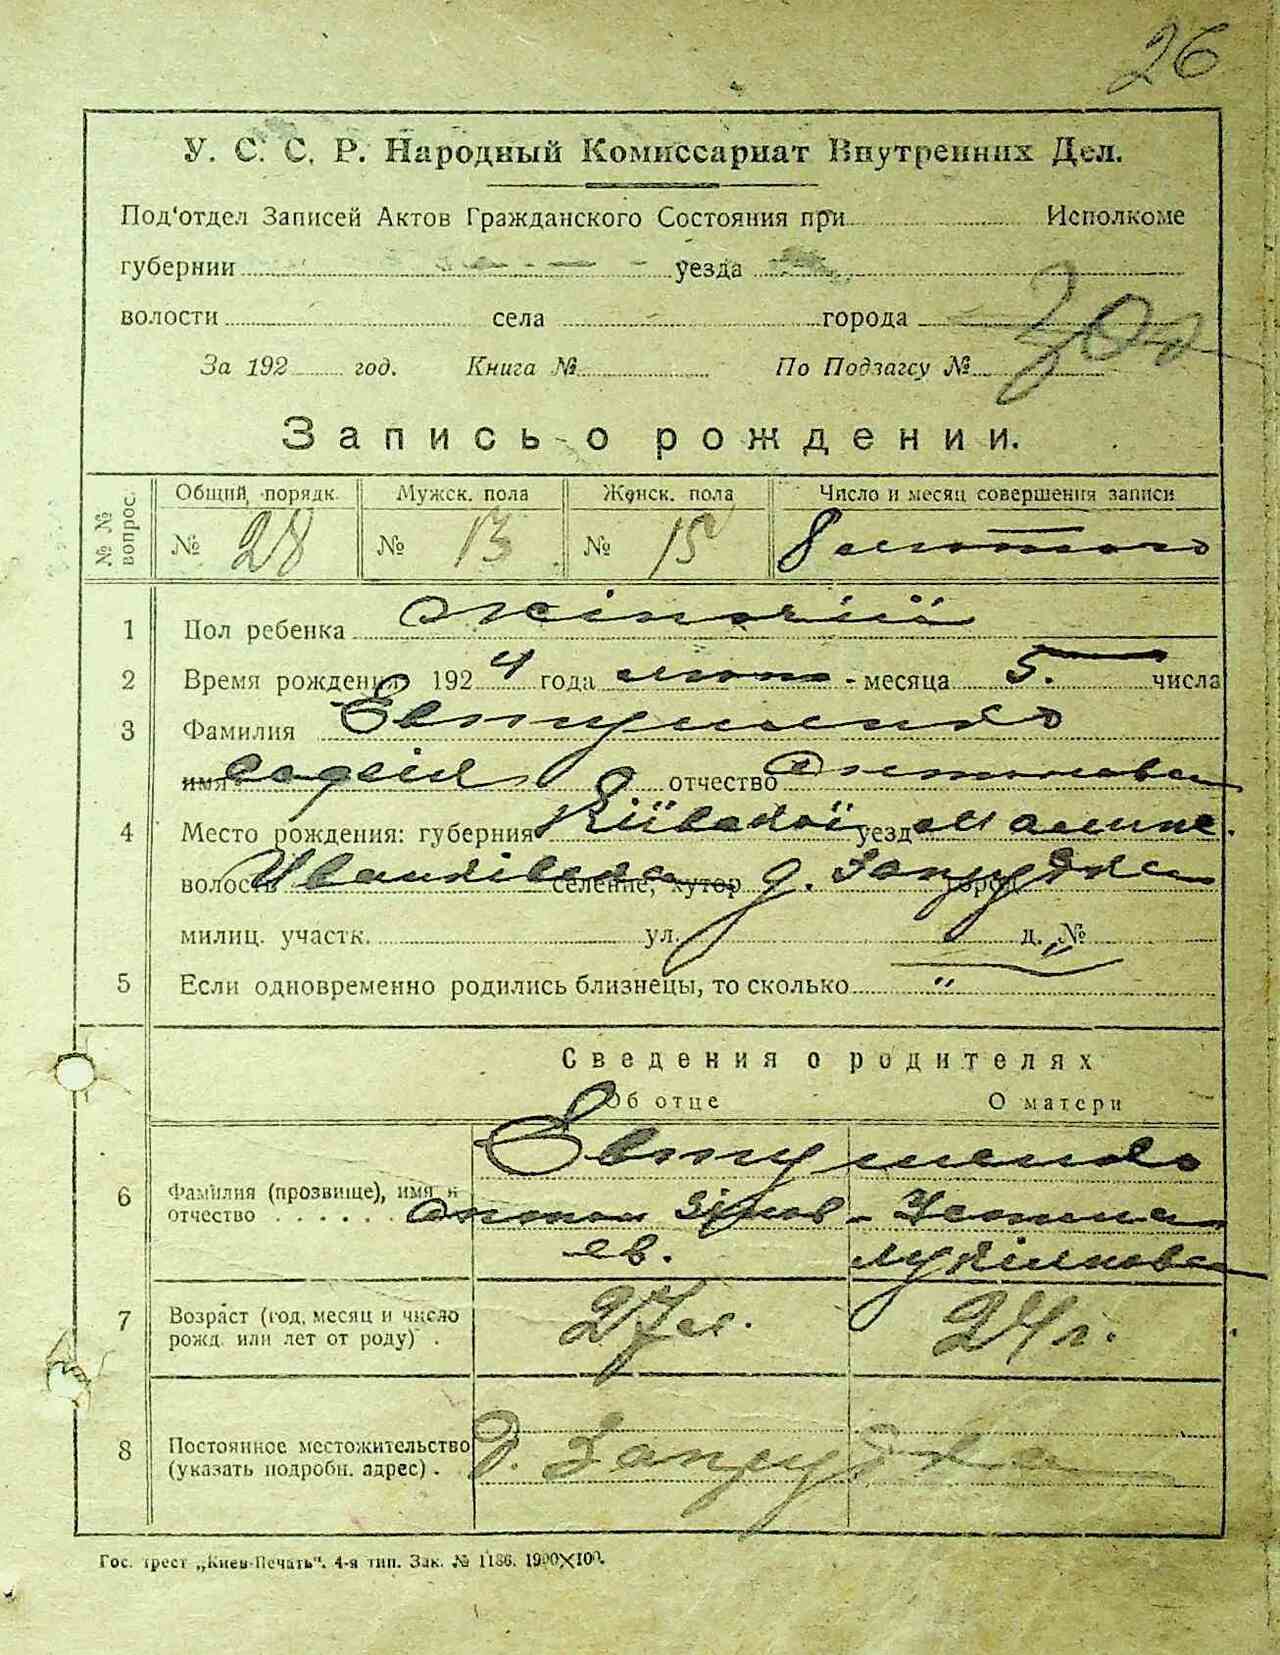 26
У. С. С. Р. Народный Комиссариат Внутренних Дел.
Под'отдел Записей Актов Гражданского Состояния при Исполкоме
губернии уезда
волости села города
За 192 год. Книга № По Подзагсу №
Запись о рождении.
№ № вопрос. Общий порядк. Мужск. пола Женск. пола Число и месяц совершения записи
№ 28 № 13 № 15 8 лютого
1 Пол ребенка жіночий
2 Время рождения 1924 года месяца 5. числа
3 Фамилия Евтушенко
имя Софія отчество Антоновна
4 Место рождения: губерния Київської уезд Малинс.
волость Иванківська селение, хутор д. Запрудка город
милиц. участк. ул. д. № "
5 Если одновременно родились близнецы, то сколько "
Сведения о родителях
Об отце О матери
Евтушенко
6 Фамилия (прозвище), имя и
отчество . . . . . . Антон Зінов-
ев.
7 Возраст (год, месяц и число
рожд. или лет от роду) . 27 л. 24 л.
8 Постоянное местожительство
(указать подробн. адрес) . Д. Запрудка
Гос. трест „Киев-Печать". 4-я тип. Зак. № 1186. 1900×100.